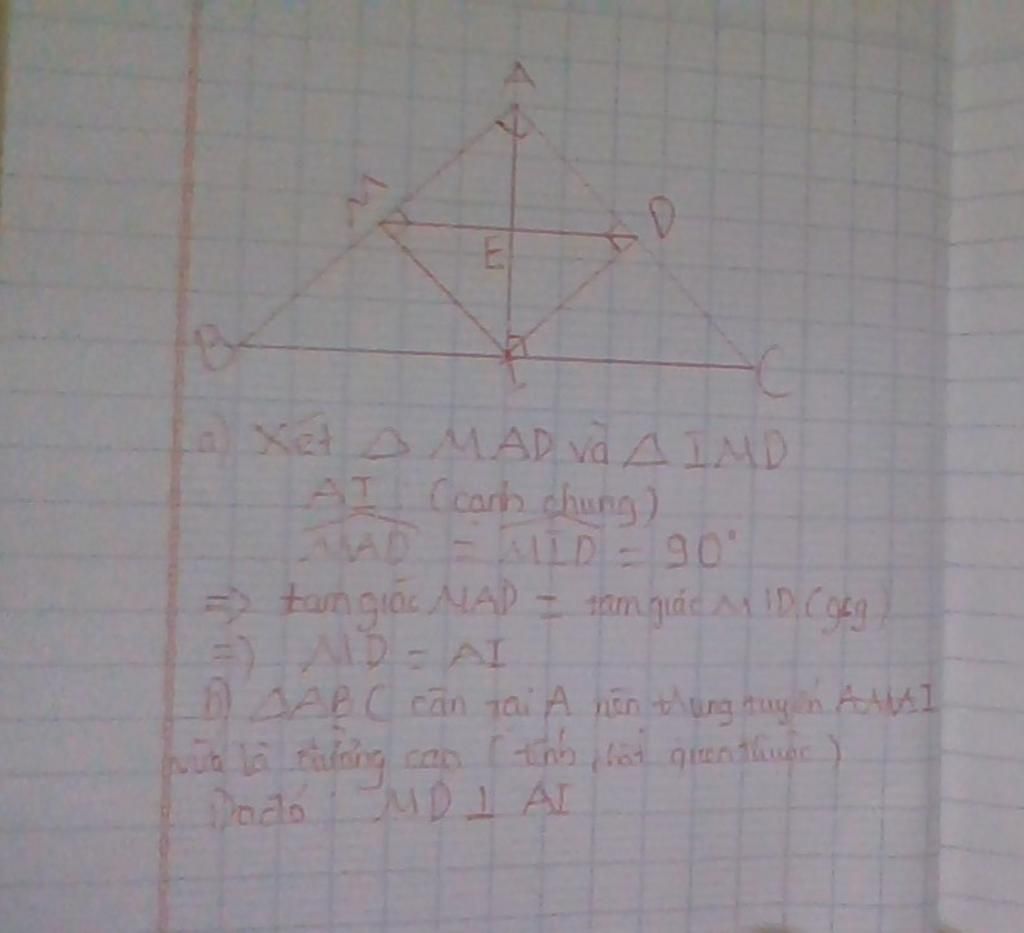 A
M
D
E
B
I
C
a) Xét Δ MAD và Δ IMD
AI (cạnh chung)
MAD = MID = 90°
=> tam giác MAD = tam giác MID (gcg)
=> MD = AI
b) ΔABC cân tại A nên trung tuyến AI
vừa là đường cao (tính chất quen thuộc)
Do đó MD ⊥ AI